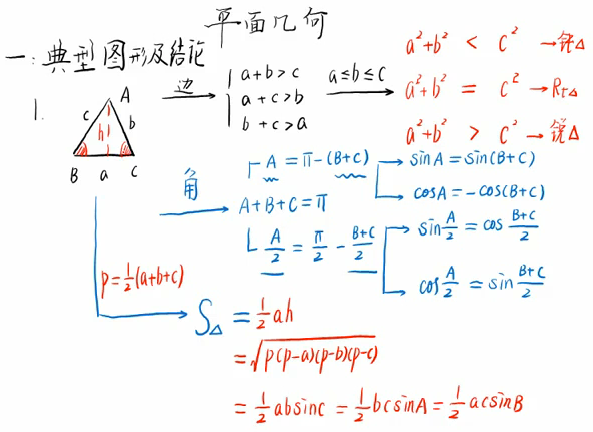 平面几何
一:典型图形及结论
1.
A
c
b
h
B a C
边
a+b>c
a+c>b
b+c>a
a≤b≤c
a²+b² < c² →钝△
a²+b² = c² →Rt△
a²+b² > c² →锐△
角
A+B+C=π
A=π-(B+C)
sinA=sin(B+C)
cosA=-cos(B+C)
A/2=π/2-(B+C)/2
sin A/2=cos (B+C)/2
cos A/2=sin (B+C)/2
p=½(a+b+c)
S△=½ah
=√p(p-a)(p-b)(p-c)
=½absinc=½bcsinA=½acsinB